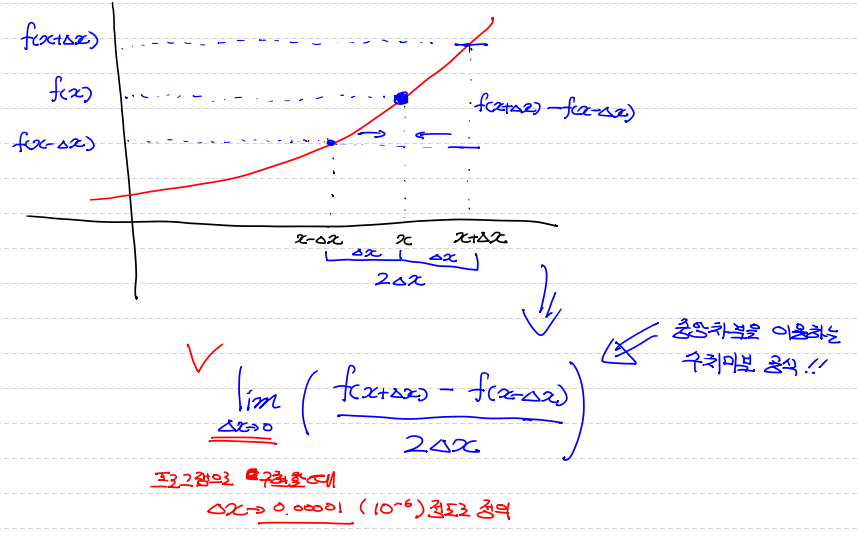 f(x+Δx)
f(x)
f(x-Δx)
f(x+Δx) - f(x-Δx)
x-Δx x x+Δx
Δx Δx
2Δx
중앙차분을 이용하는
수치미분 공식!!
lim Δx→0 ( f(x+Δx) - f(x-Δx) / 2Δx )
프로그램으로 구현할 때
Δx → 0.00001 (10^-6) 정도로 정의